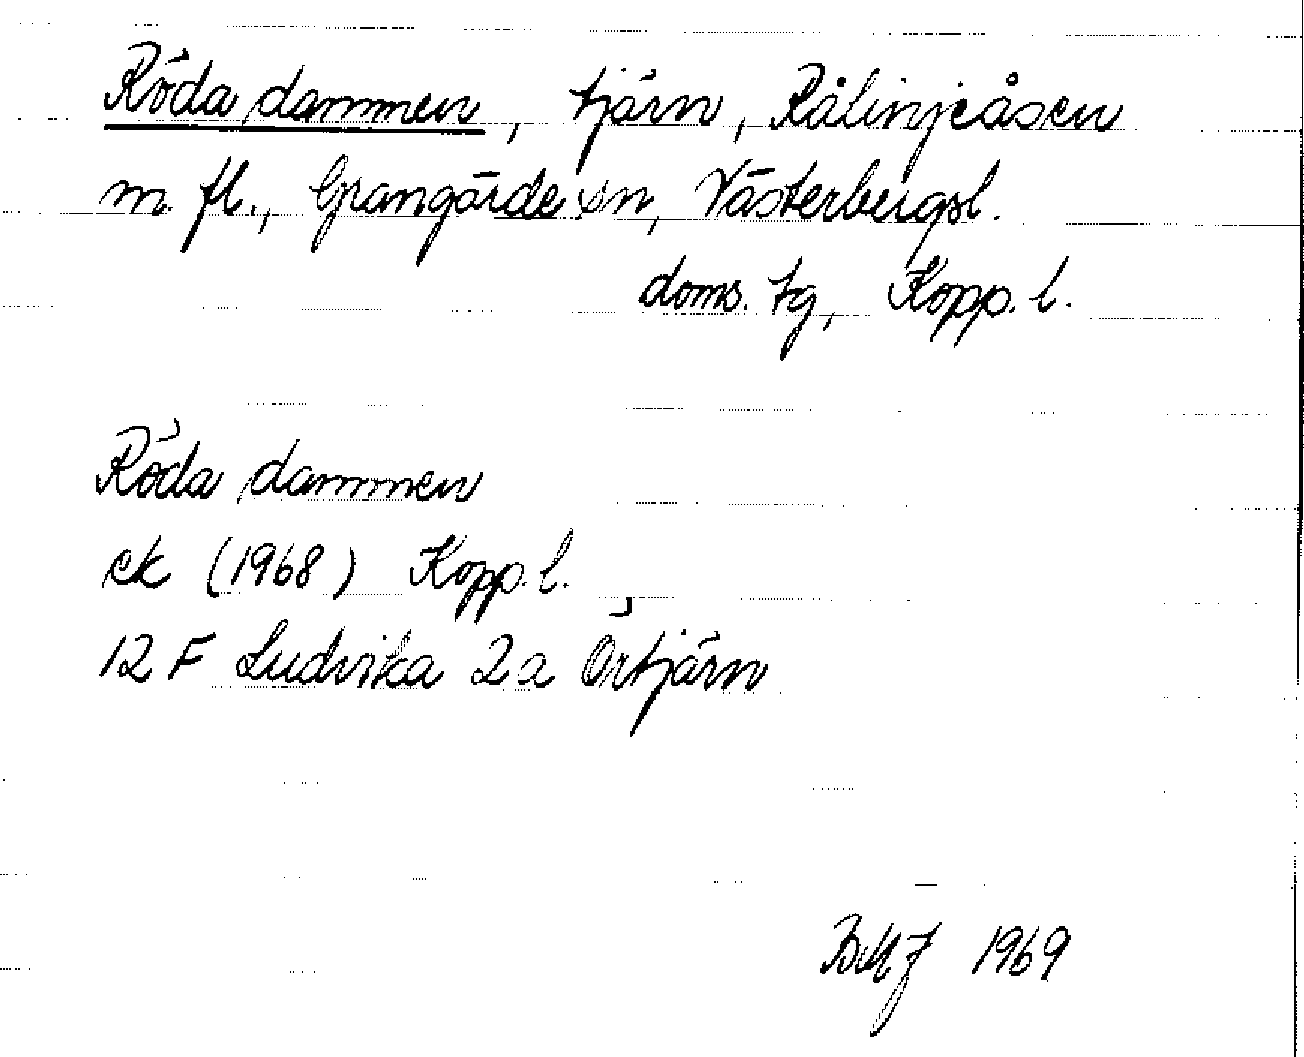 Röda dammen, tjärn, Rålinjeåsen
m. fl., Grangärde sn, Västerbergsl.
doms. tg, Kopp. l.
Röda dammen
ek (1968) Kopp. l.
12 F Ludvika 2a Örtjärn
BMJ 1969